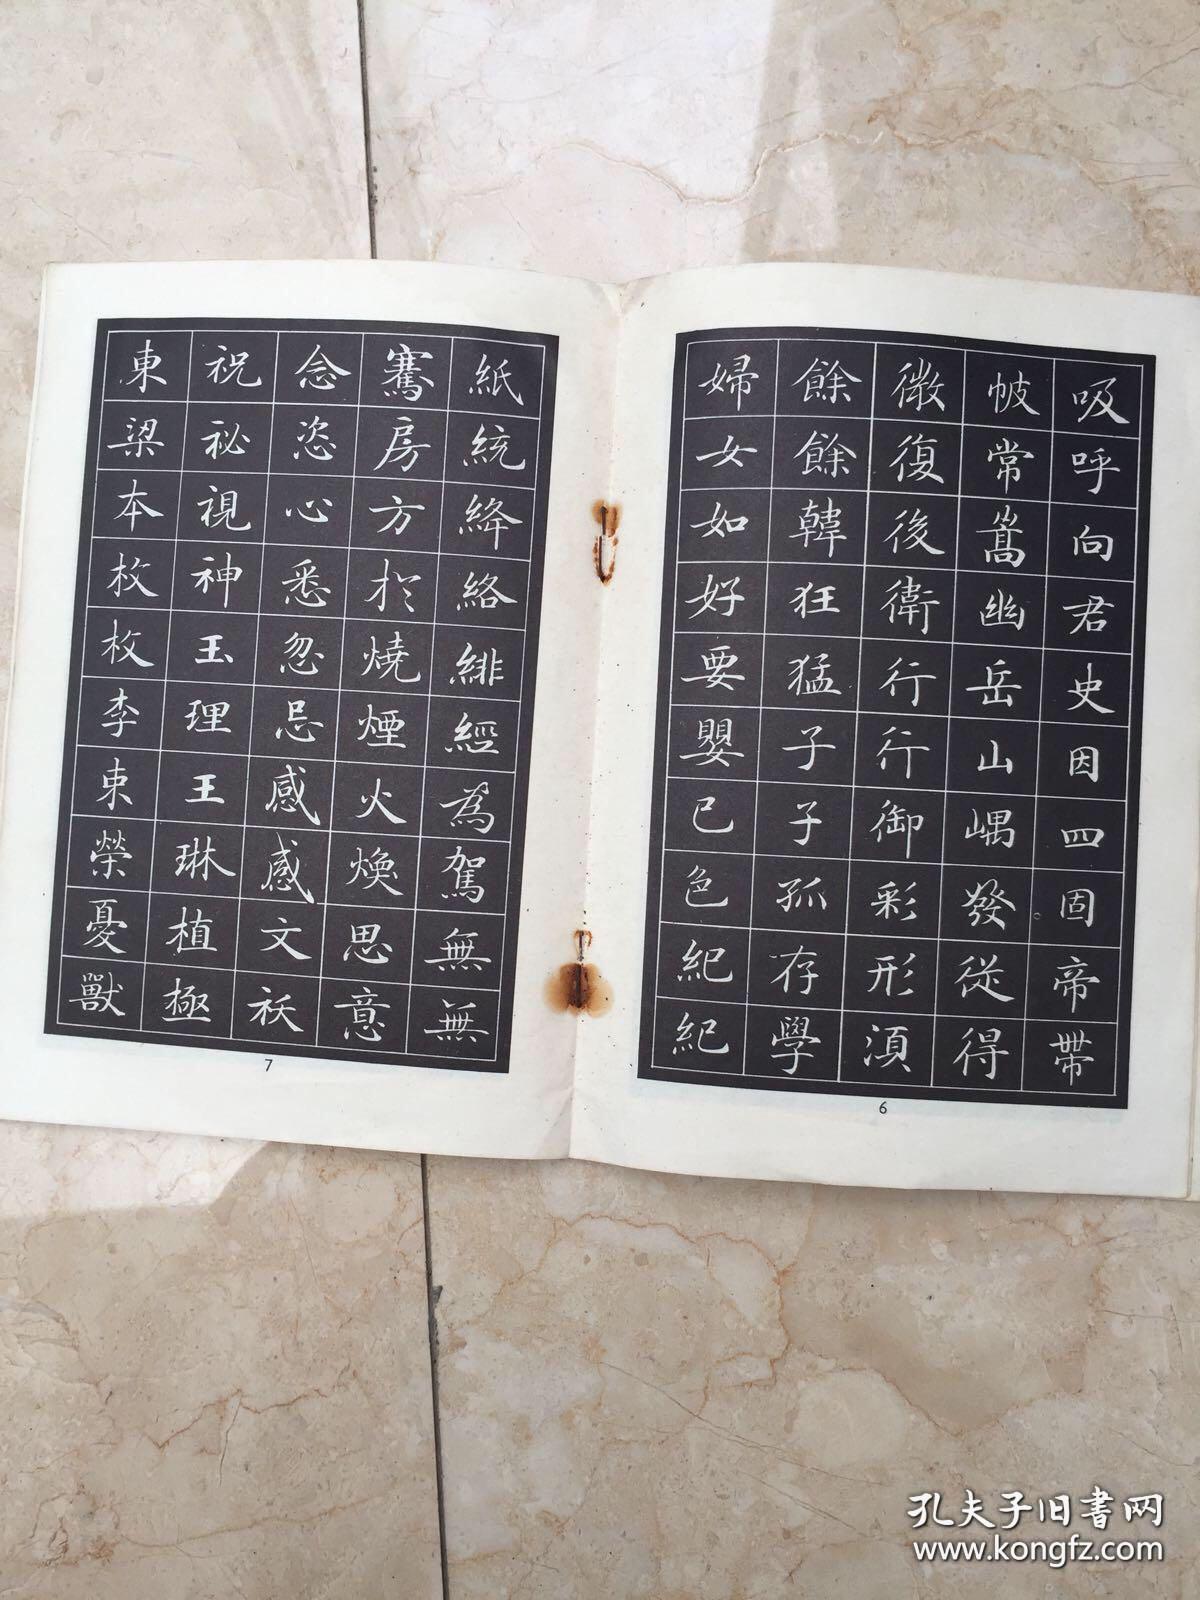 吸呼向君史因四固帝帶
帔常嵩幽岳山嵎發從得
微復後衛行行御彩形須
餘餘韓狂猛子子孤存學
婦女如好要嬰已色紀紀
6
紙統絳絡緋經為駕無無
騫房方於燒煙火煥思意
念恣心悉忽忌感感文祆
祝祕視神玉理王琳植極
東梁本枚枚李東榮憂獸
7
孔夫子旧书网
www.kongfz.com